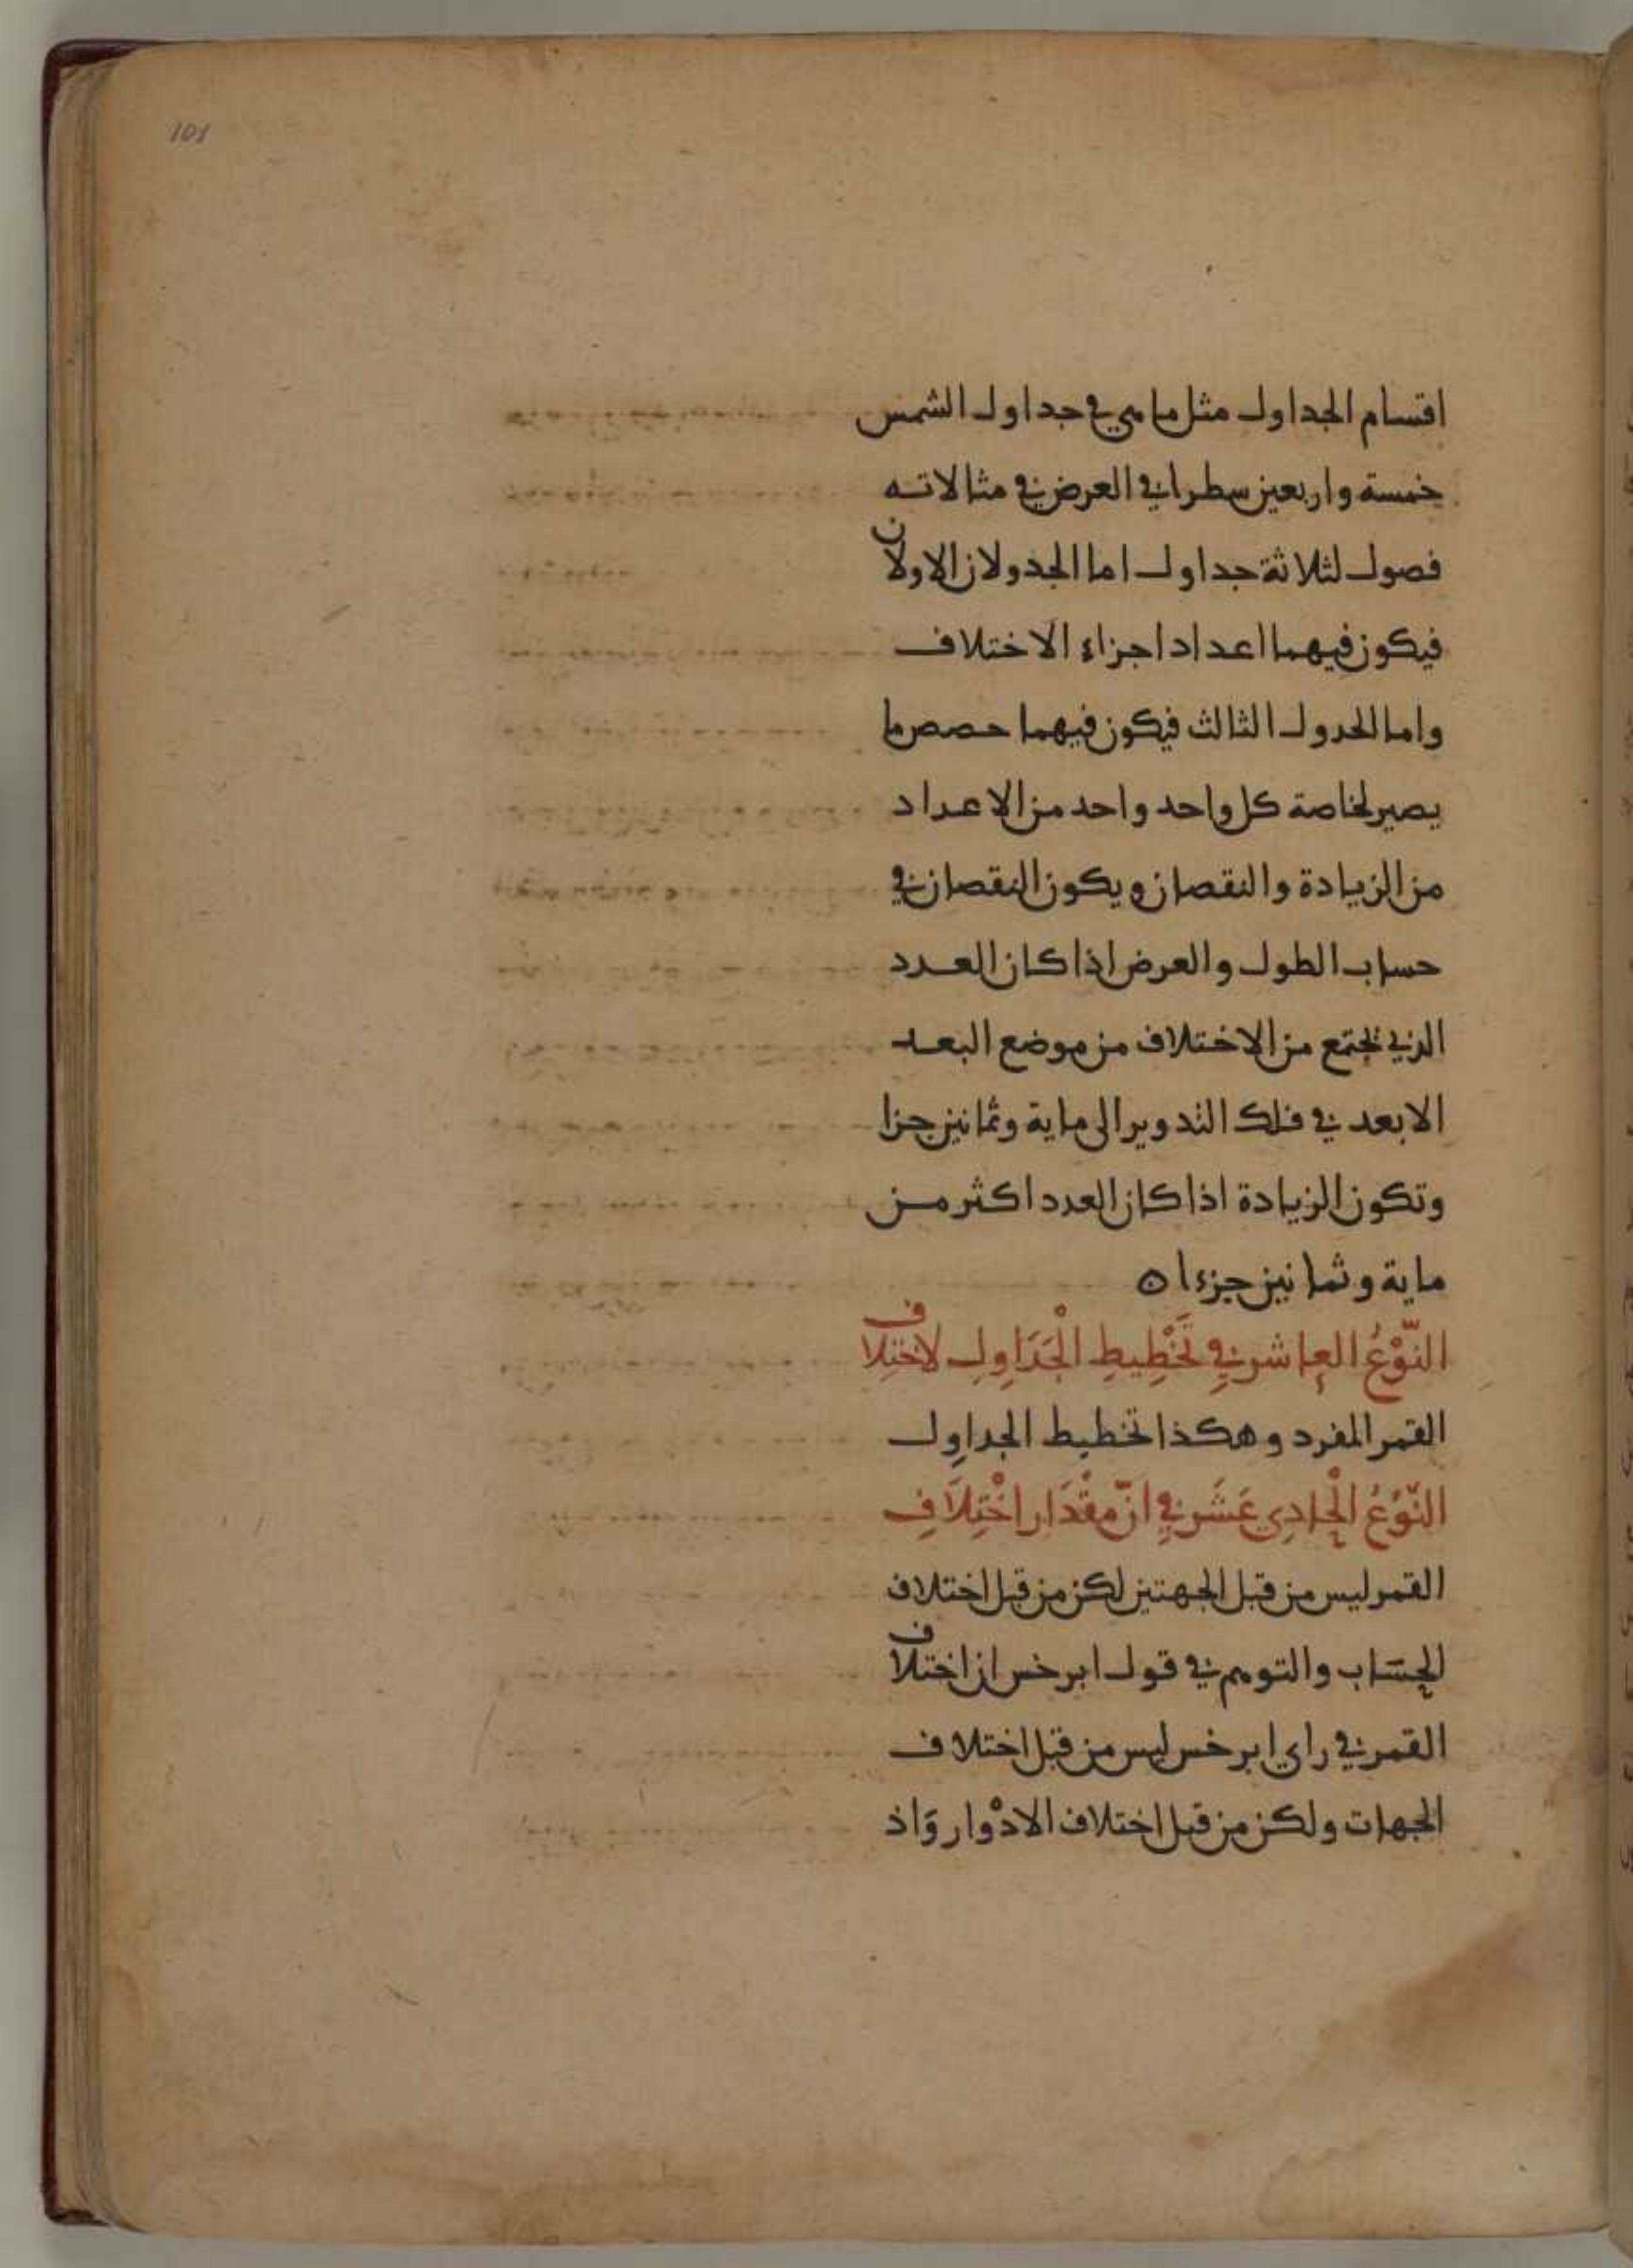 101
اقسام الجداول مثل ما هي في جداول الشمس
خمسة واربعين سطرا في العرض في مثالاته
فصول لثلاثة جداول اما الجدولان الاولان
فيكون فيهما اعداد اجزاء الاختلاف
واما الحدول الثالث فيكون فيهما حصص ما
يصير لخاصة كل واحد واحد من الاعداد
من الزيادة والنقصان ويكون النقصان في
حساب الطول والعرض اذا كان العدد
الذي تجتمع من الاختلاف من موضع البعد
الابعد في فلك التدوير الى ماية وثمانين جزا
وتكون الزيادة اذا كان العدد اكثر من
ماية وثمانين جزءا ه
النَّوْعُ العاشر فِي تَخْطِيطِ الْجَدَاوِلِ لاختِلاف
القمر المفرد وهكذا تخطيط الجداول
النَّوْعُ الْحادِي عَشَر فِي انّ مقْدَار اخْتِلَافِ
القمر ليس من قبل الجهتين لكن من قبل اختلاف
الحساب والتوهم في قول ابرخس ان اختلاف
القمر في راي ابرخس ليس من قبل اختلاف
الجهات ولكن من قبل اختلاف الادْوار وَاذ